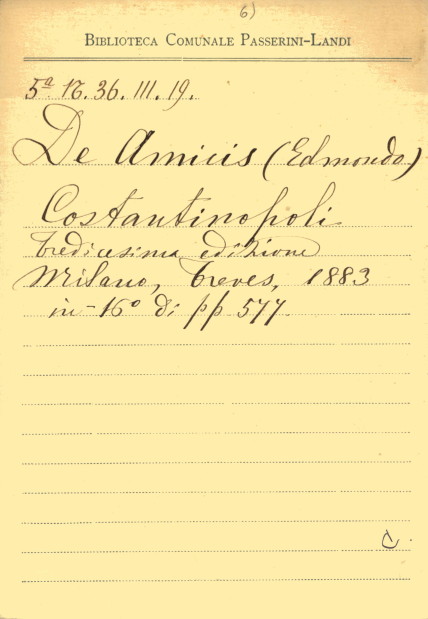 6)
BIBLIOTECA COMUNALE PASSERINI-LANDI
5ª N. 36. III. 19.
De Amicis (Edmondo)
Costantinopoli
tredicesima edizione
Milano, Treves, 1883
in-16º di pp. 577.
C.